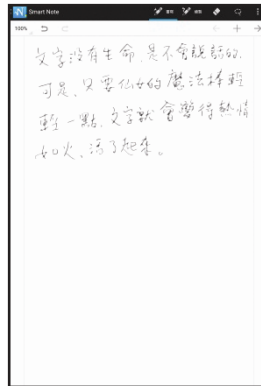 Smart Note
100%
文字沒有生命，是不會說話的．
可是，只要仙女的魔法棒輕
輕一點，文字就會變得熱情
如火，活了起來。